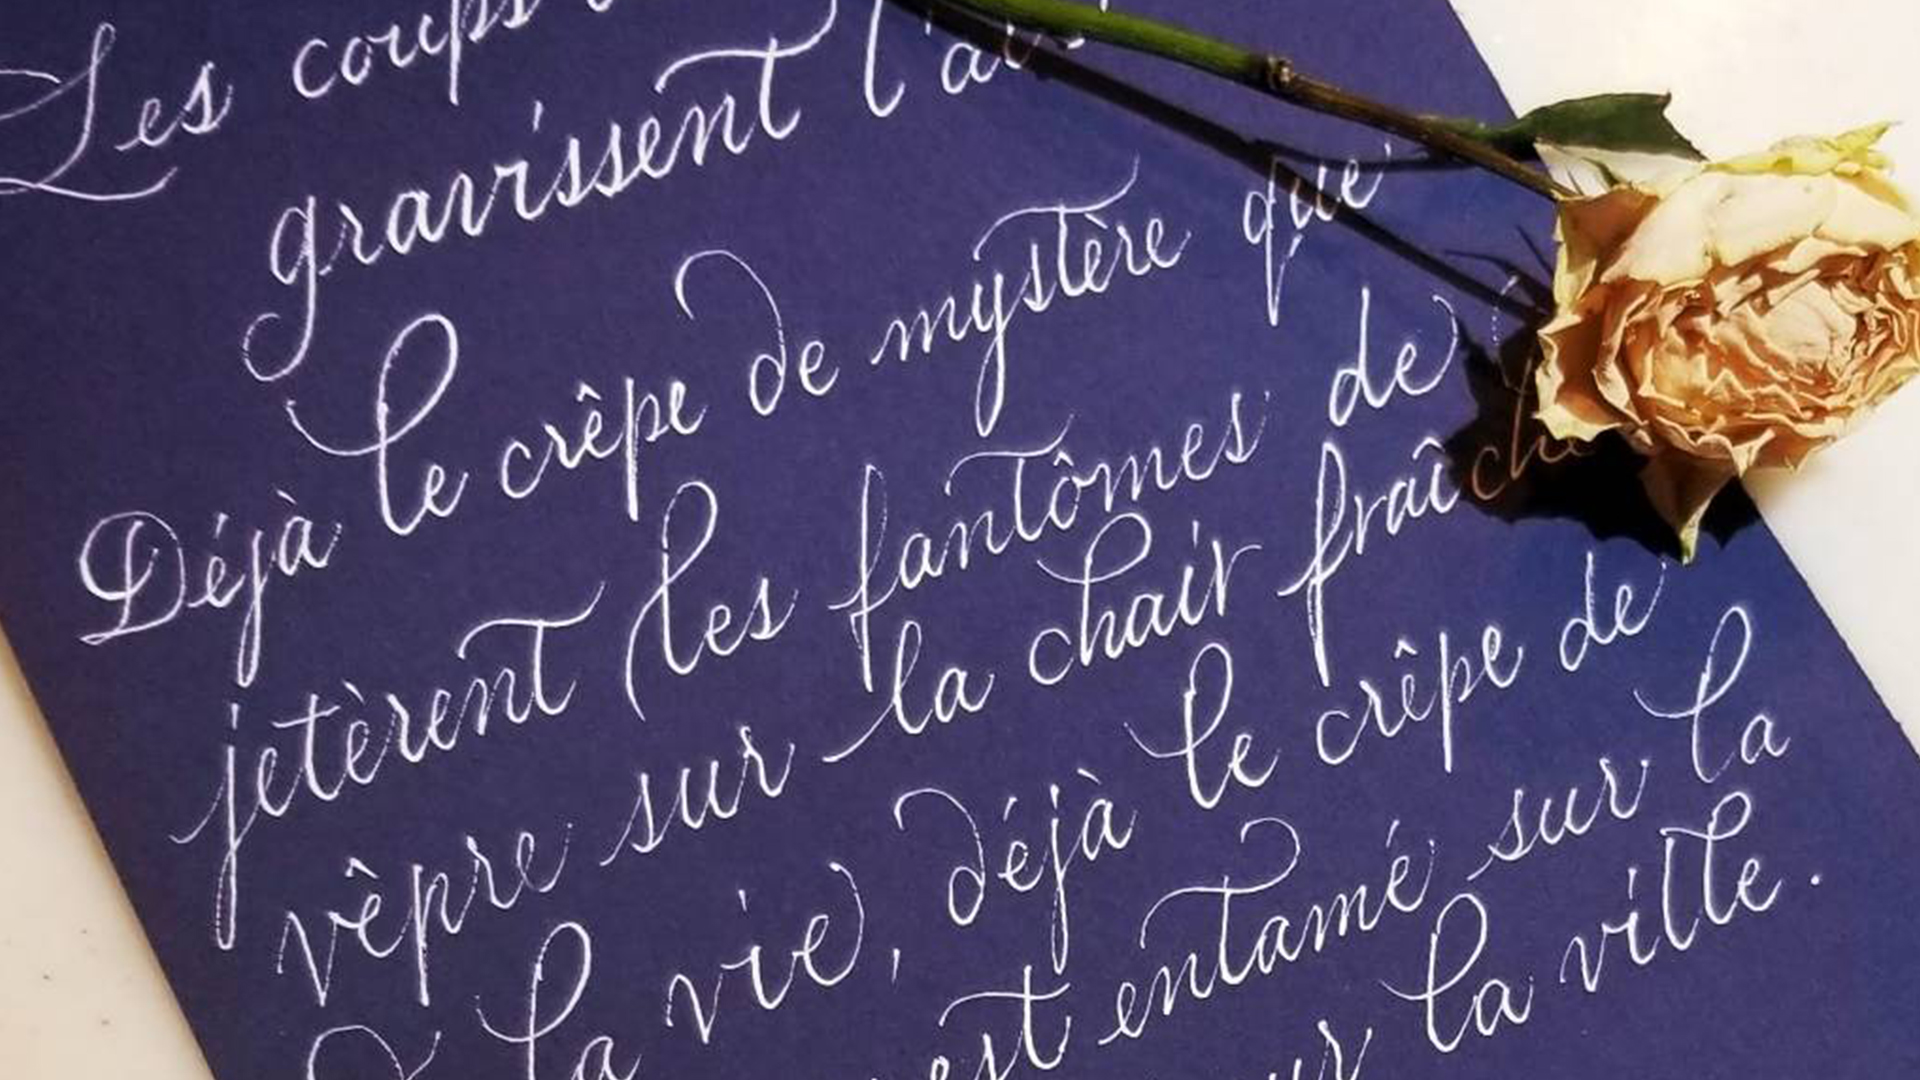 Les coups
gravissent l'air
Déjà le crêpe de mystère que
jetèrent les fantômes de
vêpre sur la chair fraîche
la vie, déjà le crêpe de
est entamé sur la
sur la ville.